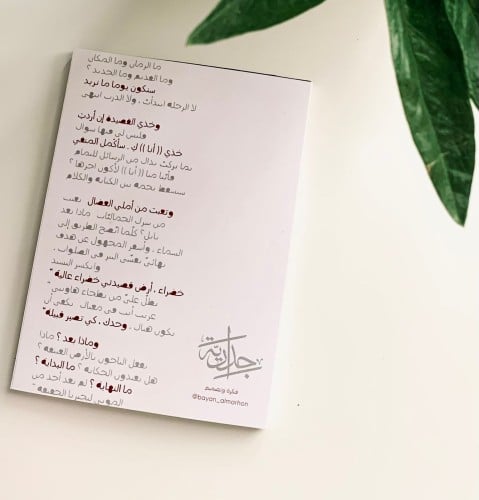 ما الزمان وما المكان
وما القديم وما الجديد ؟
سنكون يوما ما نريد
لا الرحلة ابتدأت ، ولا الدرب انتهى
وخذي القصيدة إن أردتِ
وليس لي فيها سواكِ
خذي (( أنا )) كِ . سأكمل المنفى
بما تركتْ يداكِ من الرسائل لليمام
فأيّنا منا (( أنا )) لأكون آخرها ؟
ستسقط نجمة بين الكتابة والكلام
وتعبت من أملي العضال . تعبت
من شرك الجماليّات ماذا بعد
بابل؟ كلّما اتّضح الطريق إلى
السماء ، وأسفر المجهول عن هدف
نهائيّ تفشّى النثر في الصلوات ،
وانكسر النشيد
خضراء ، أرض قصيدتي خضراء عالية "
يطلّ عليّ من بطحاء هاويتي "
غريب أنت في معناك . يكفي أن
تكون هناك ، وحدك ، كي تصير قبيلة"
وماذا بعد ؟ ماذا
يفعل الناجون بالأرض العتيقة ؟
هل يعيدون الحكاية ؟ ما البداية ؟
ما النهاية ؟ لم يعد أحد من
الموتى ليخبرنا الحقيقة "
جدارية
فكرة وتصميم
@bayan_almorhon